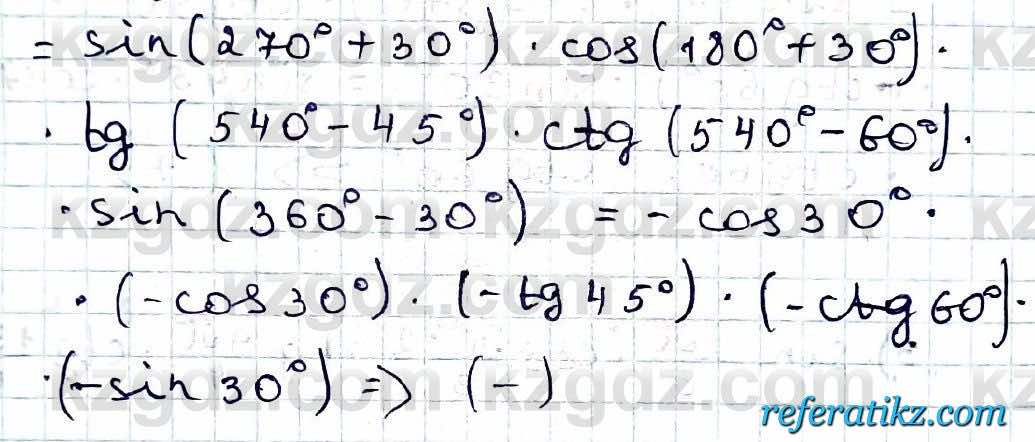 = sin(270° + 30°) · cos(180° + 30°) ·
· tg (540° - 45°) · ctg (540° - 60°) ·
· sin (360° - 30°) = - cos 30° ·
· (- cos 30°) · (- tg 45°) · (- ctg 60°) ·
· (- sin 30°) => (-)
referatikz.com